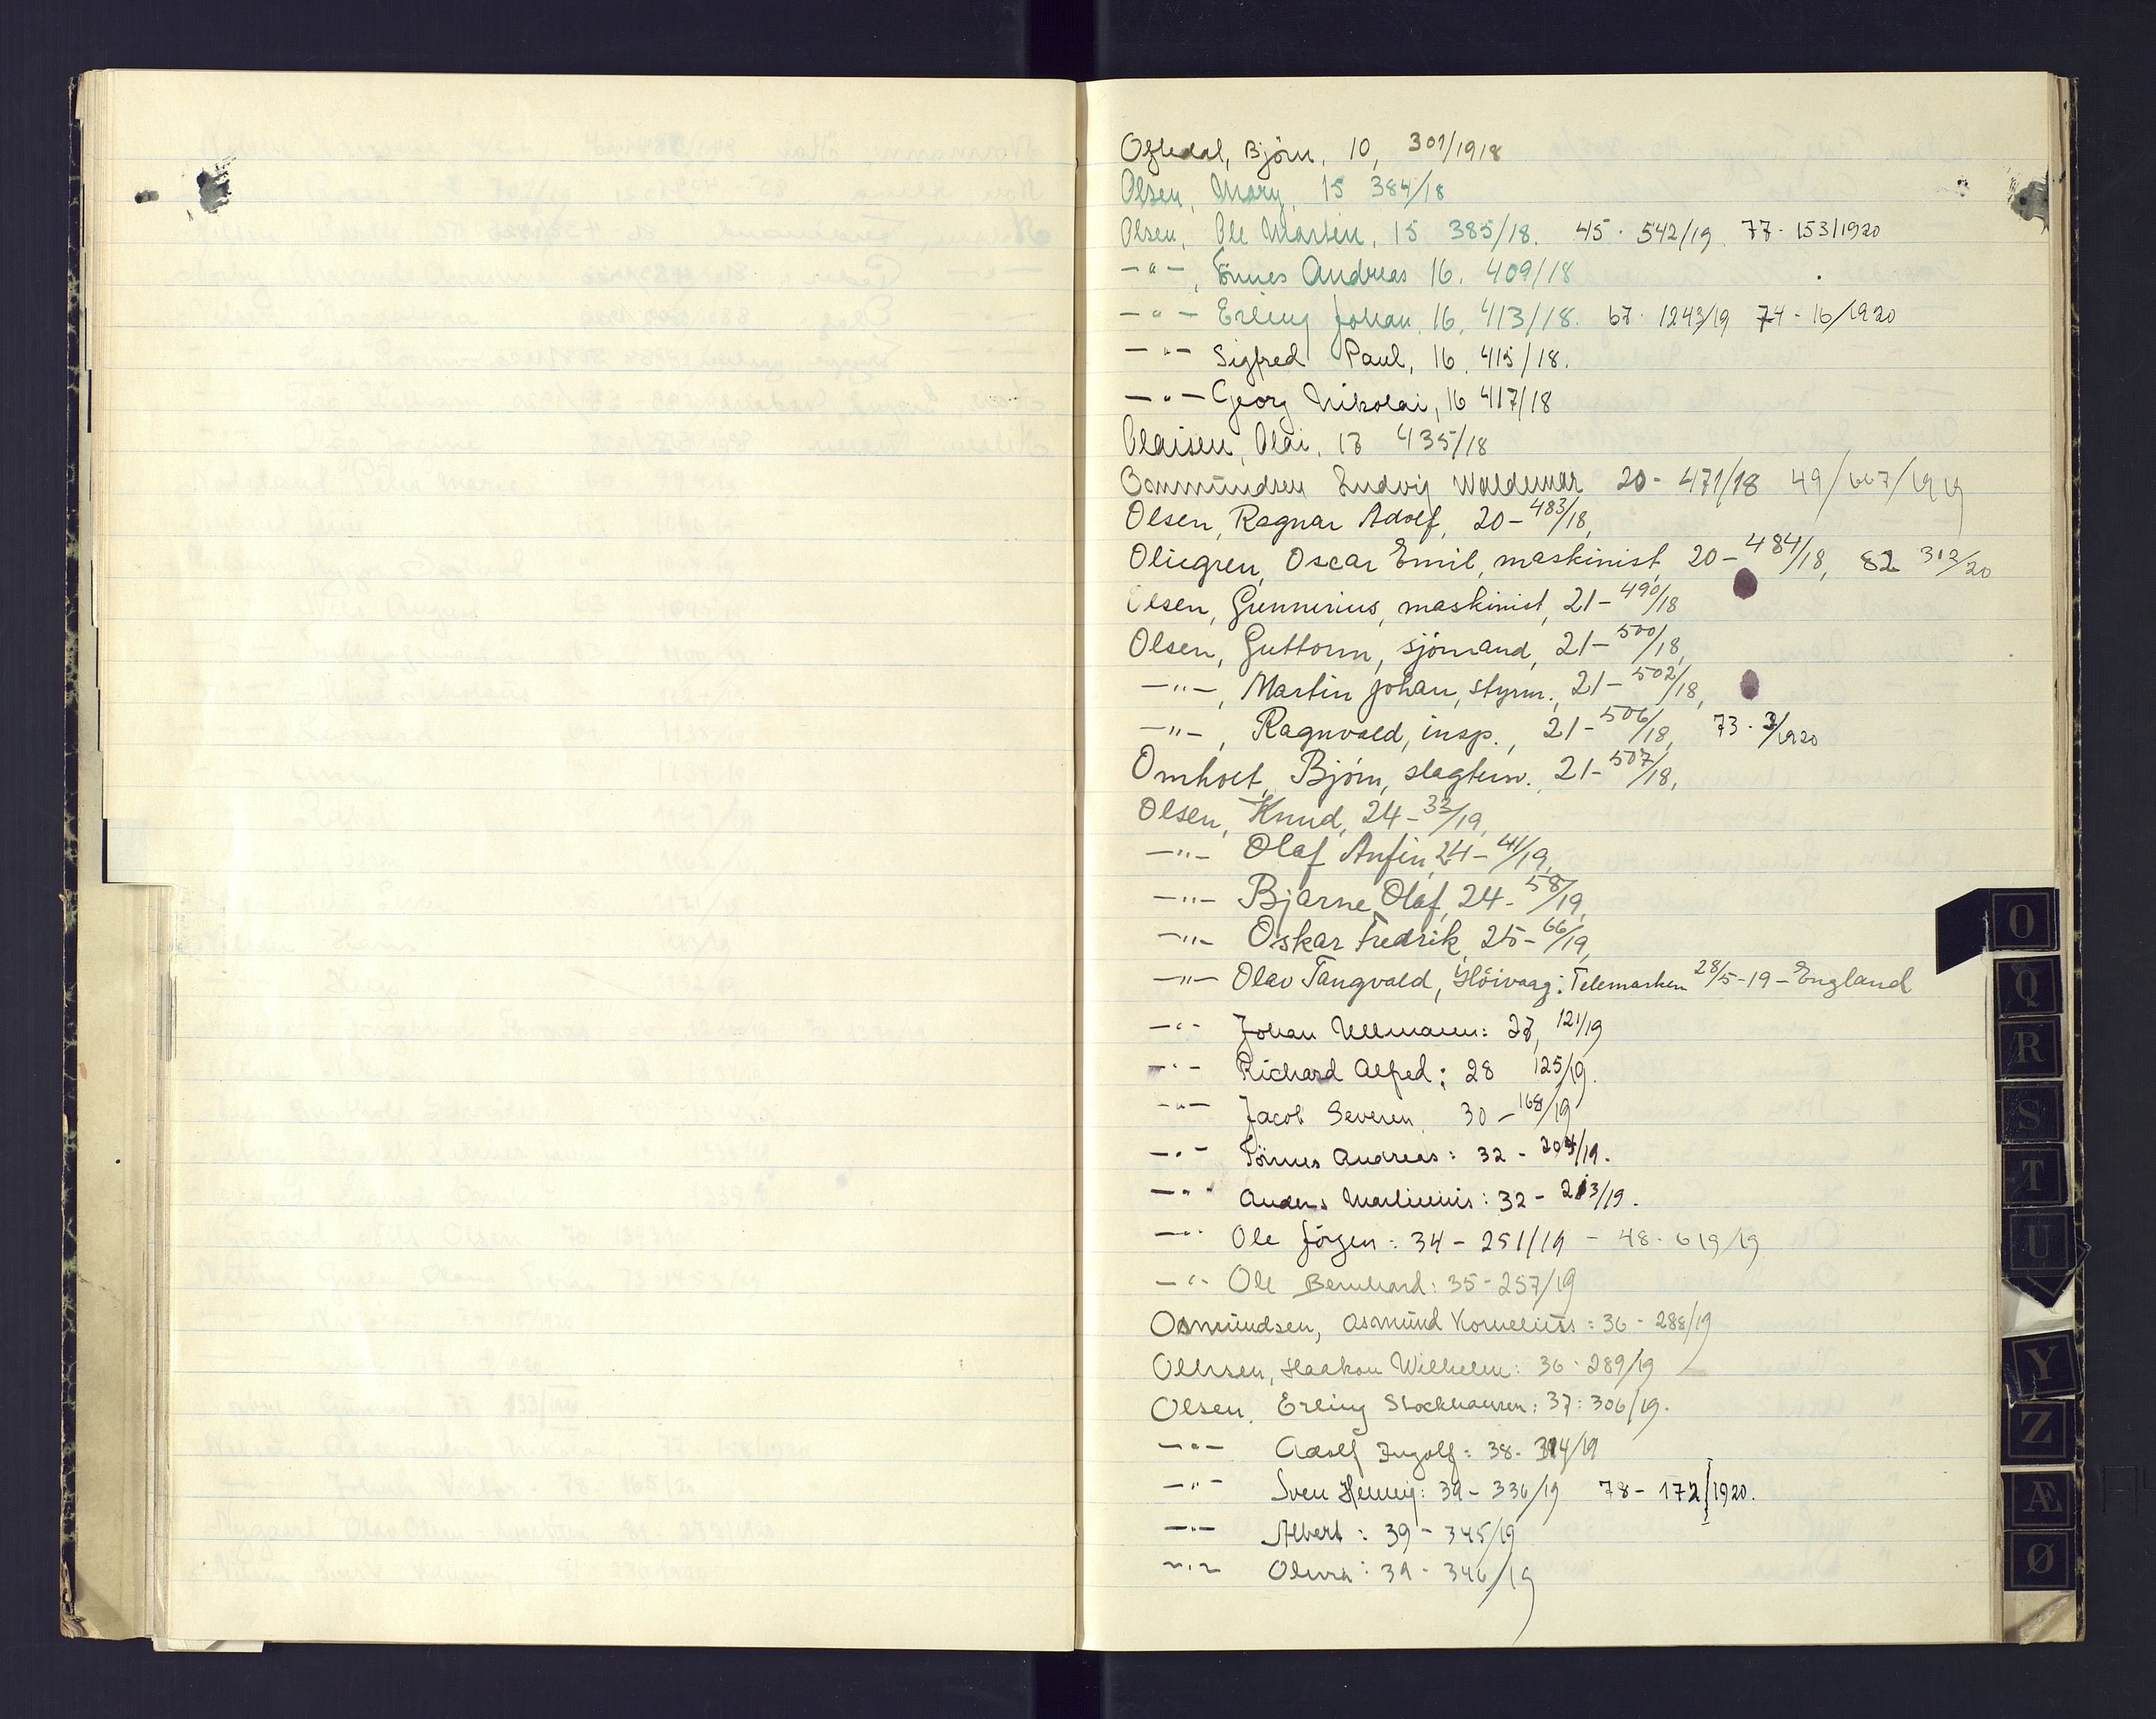 Ogledal, Björn, 10, 301/1918
Olsen, Mary, 15 384/18
Olsen, Ole Martin, 15 385/18. 45 - 542/19 77 - 153/1920
-"-, Tönnes Andreas 16. 409/18
-"- Erling Johan, 16, 413/18. 67 - 1243/19 74 - 16/1920
-"- Sigfred Paul, 16. 415/18.
-"- Georg Nikolai, 16 417/18
Olaisen, Olai, 18 435/18
Ommundsen Ludvig Waldemar 20 - 471/18 49/667/1919
Olsen, Ragnar Adolf, 20 - 483/18,
Oliegren, Oscar Emil, maskinist, 20 - 484/18, 82 313/20
Olsen, Gunnerius, maskinist, 21 - 490/18
Olsen, Guttorm, sjömand, 21 - 500/18,
-"-, Martin Johan, styrm., 21 - 502/18,
-"-, Ragnvald, insp., 21 - 506/18, 73 - 3/1920
Omholt, Björn, slagterm., 21 - 507/18,
Olsen, Knud, 24 - 33/19,
-"- Olaf Anfin, 24 - 41/19,
-"- Bjarne Olaf, 24 - 58/19,
-"- Oskar Fredrik, 25 - 66/19,
-"- Olav Tangvald, Höivaag: Telemarken 28/5-19 - England
-"- Johan Ullmann: 28, 121/19
-"- Richard Alfred: 28 125/19.
-"- Jacob Severin, 30 - 168/19
-"- Tönnes Andreas: 32 - 204/19.
-"- Anders Martinius: 32 - 213/19.
-"- Ole Jörgen: 34 - 251/19 - 48 - 619/19
-"- Ole Bernhard: 35 - 257/19
Osmundsen, Asmund Kornelius: 36 - 288/19
Ollisen, Haakon Wilhelm: 36 - 289/19
Olsen, Erling Stockhausen: 37: 306/19.
-"- Adolf Ingolf: 38 - 314/19
-"- Sven Hennig: 39 - 336/19 78 - 172/1920.
-"- Albert: 39 - 345/19
-"- Oliver: 39 - 346/19
O
Q
R
S
T
U
Y
Z
Æ
Ø